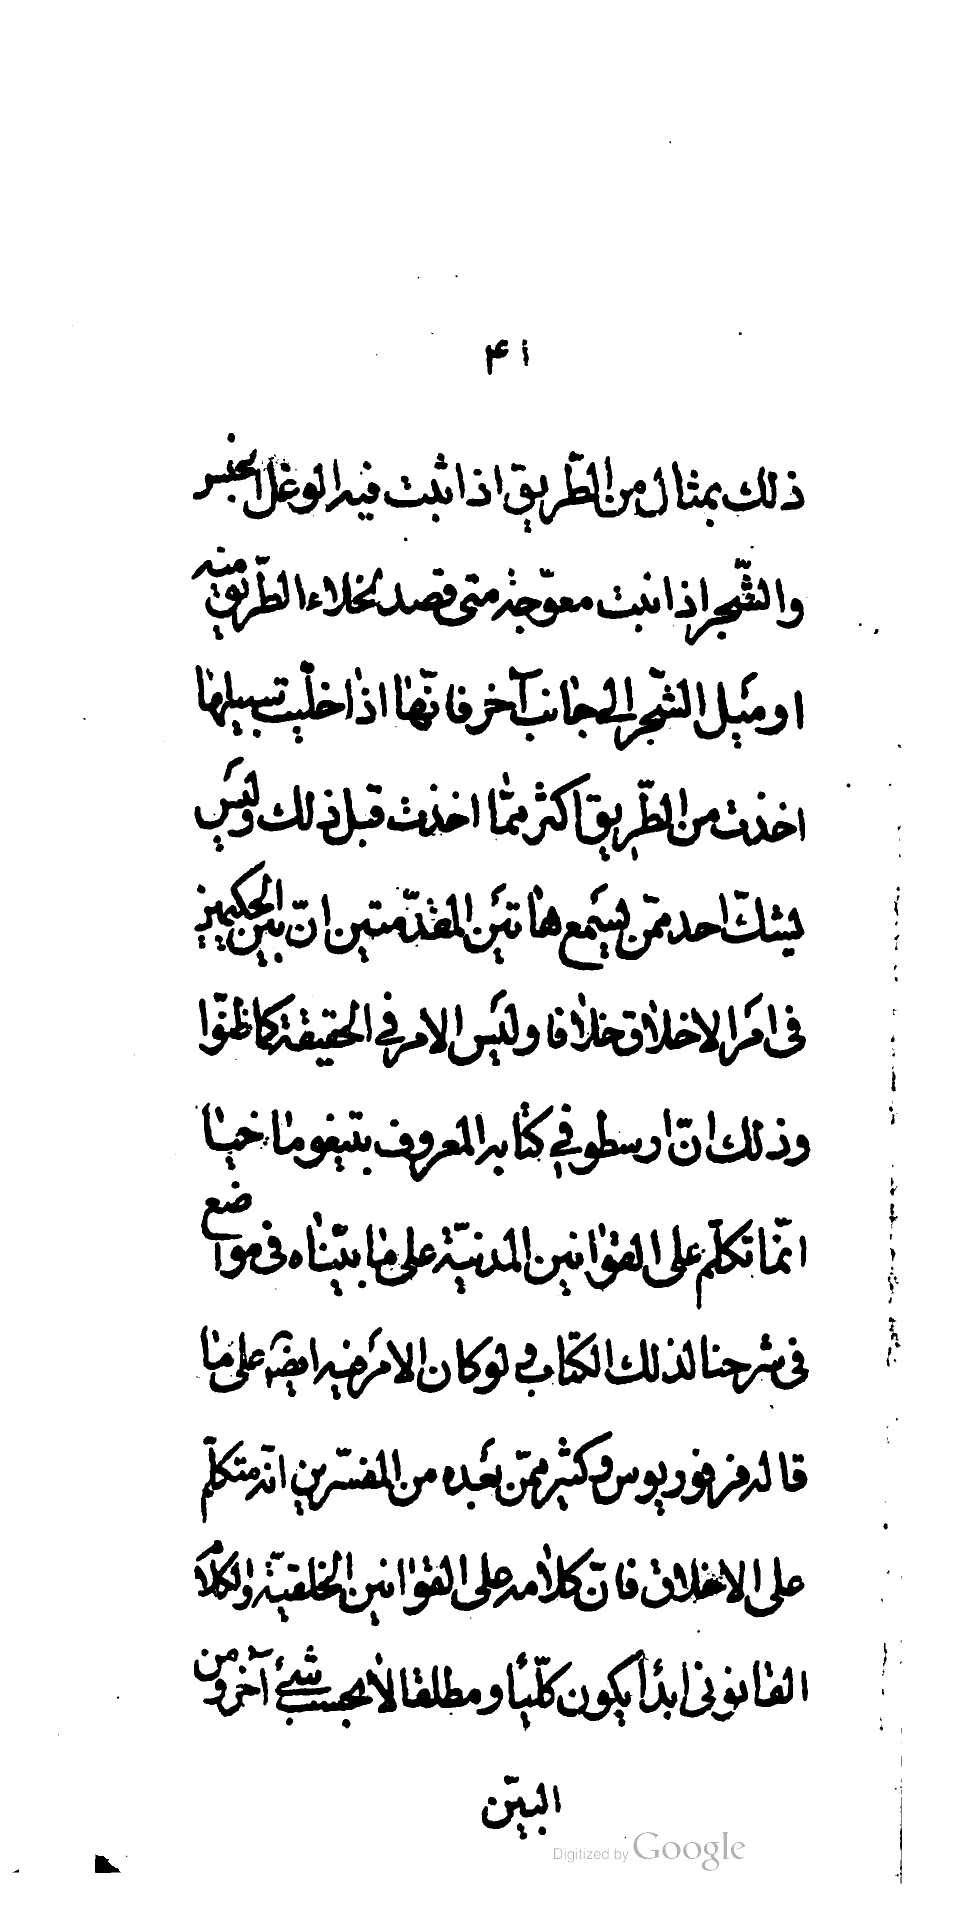 ۴۱
ذلك بمثال من الطّريق اذا ثبت فيه الوغل الجنس
والشّجر اذا نبت معوّجة متى قصد لخلاء الطّريق منه
او مَيل الشّجر الى جانب آخر فانّها اذا خلّيت تسبيلها
اخذت من الطّريق اكثر ممّا اخذت قبل ذلك وليَس
يشكّ احد ممّن يسَمع هاتَين المقدّمتين انّ بين الحكيمين
فى امَر الاخلاق خلافا وليَس الامر فى الحقيقة كما ظنّوا
وذلك انّ ارسطو فى كتابه المعروف بنيقوماخيا
انّما تكلّم على القوانين المدنيّة على ما بيّنّاه فى مواضع
فى شرحنا لذلك الكتاب ولو كان الامَر فيه ايضَا على ما
قاله فرفوريوس وكثير ممّن بعَده من المفسّرين انّه متكلّم
على الاخلاق فانّ كلامه على القوانين الخلقيّة والكلام
القانونى ابدأ يكون كلّيأ و مطلقا لا بحسب شئ آخر ومن
البيّن
Digitized by Google